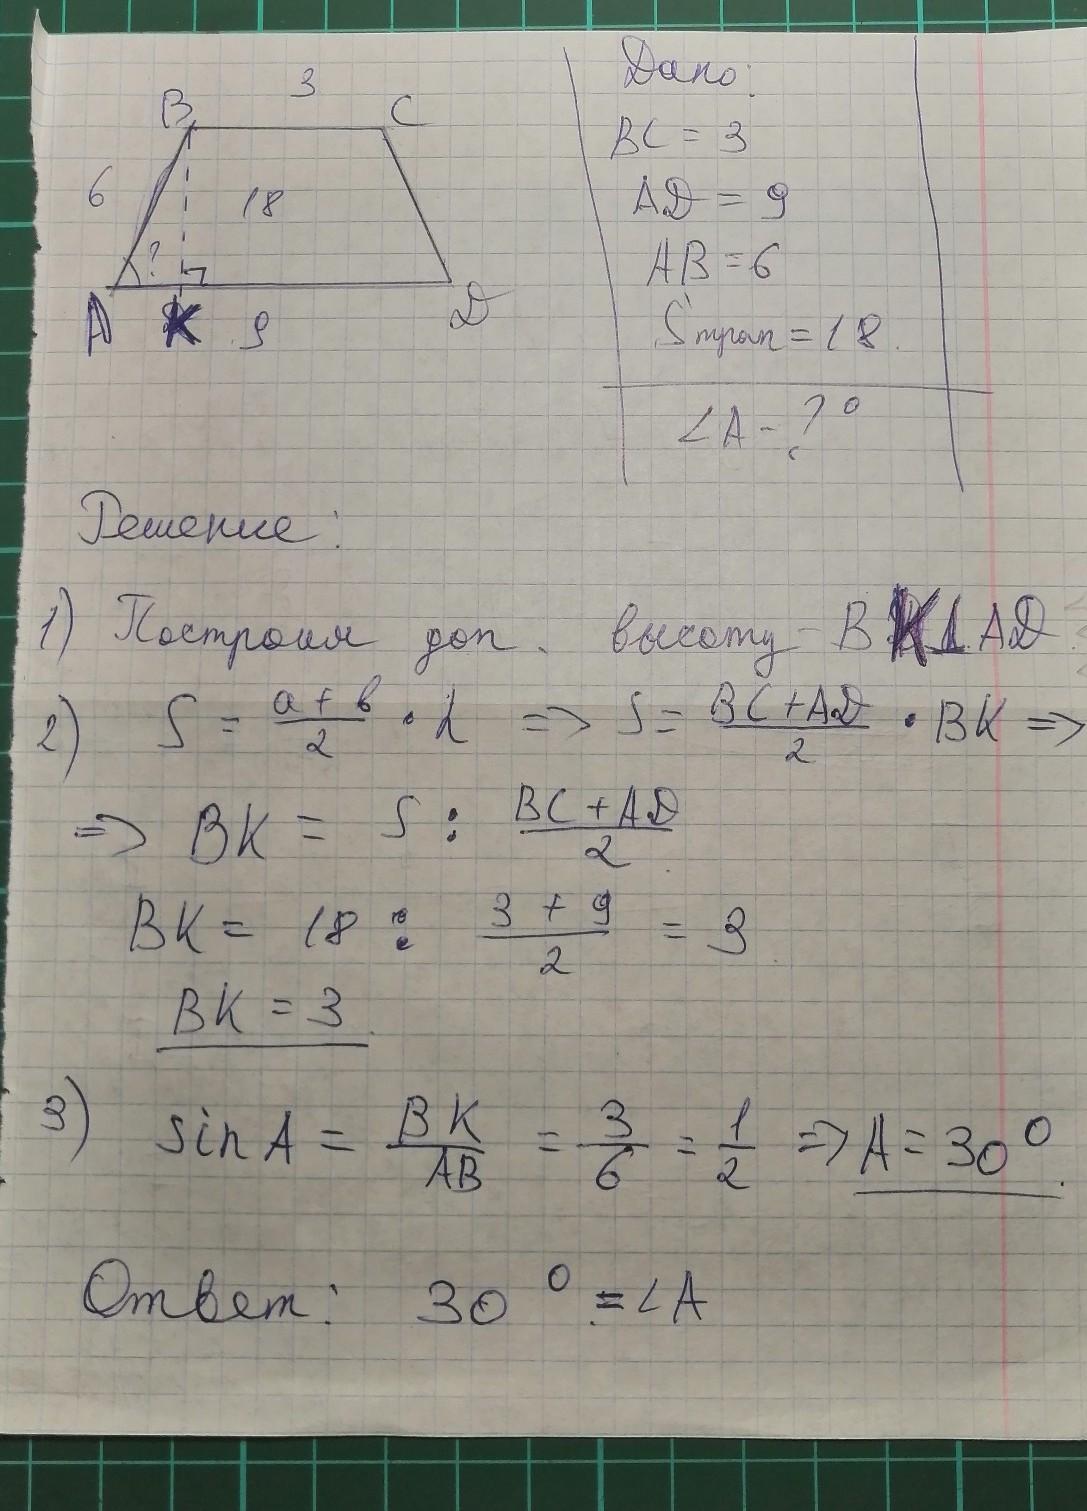 3
B C
6 18
?
A K 9 D
Дано:
BC = 3
AD = 9
AB = 6
Sтрап = 18.
∠A - ? °
Решение:
1) Построим доп. высоту - BK ⊥ AD.
2) S = (a + b)/2 · h => S = (BC + AD)/2 · BK =>
=> BK = S : (BC + AD)/2
BK = 18 : (3 + 9)/2 = 3
BK = 3.
3) sin A = BK/AB = 3/6 = 1/2 => A = 30°.
Ответ: 30° = ∠A